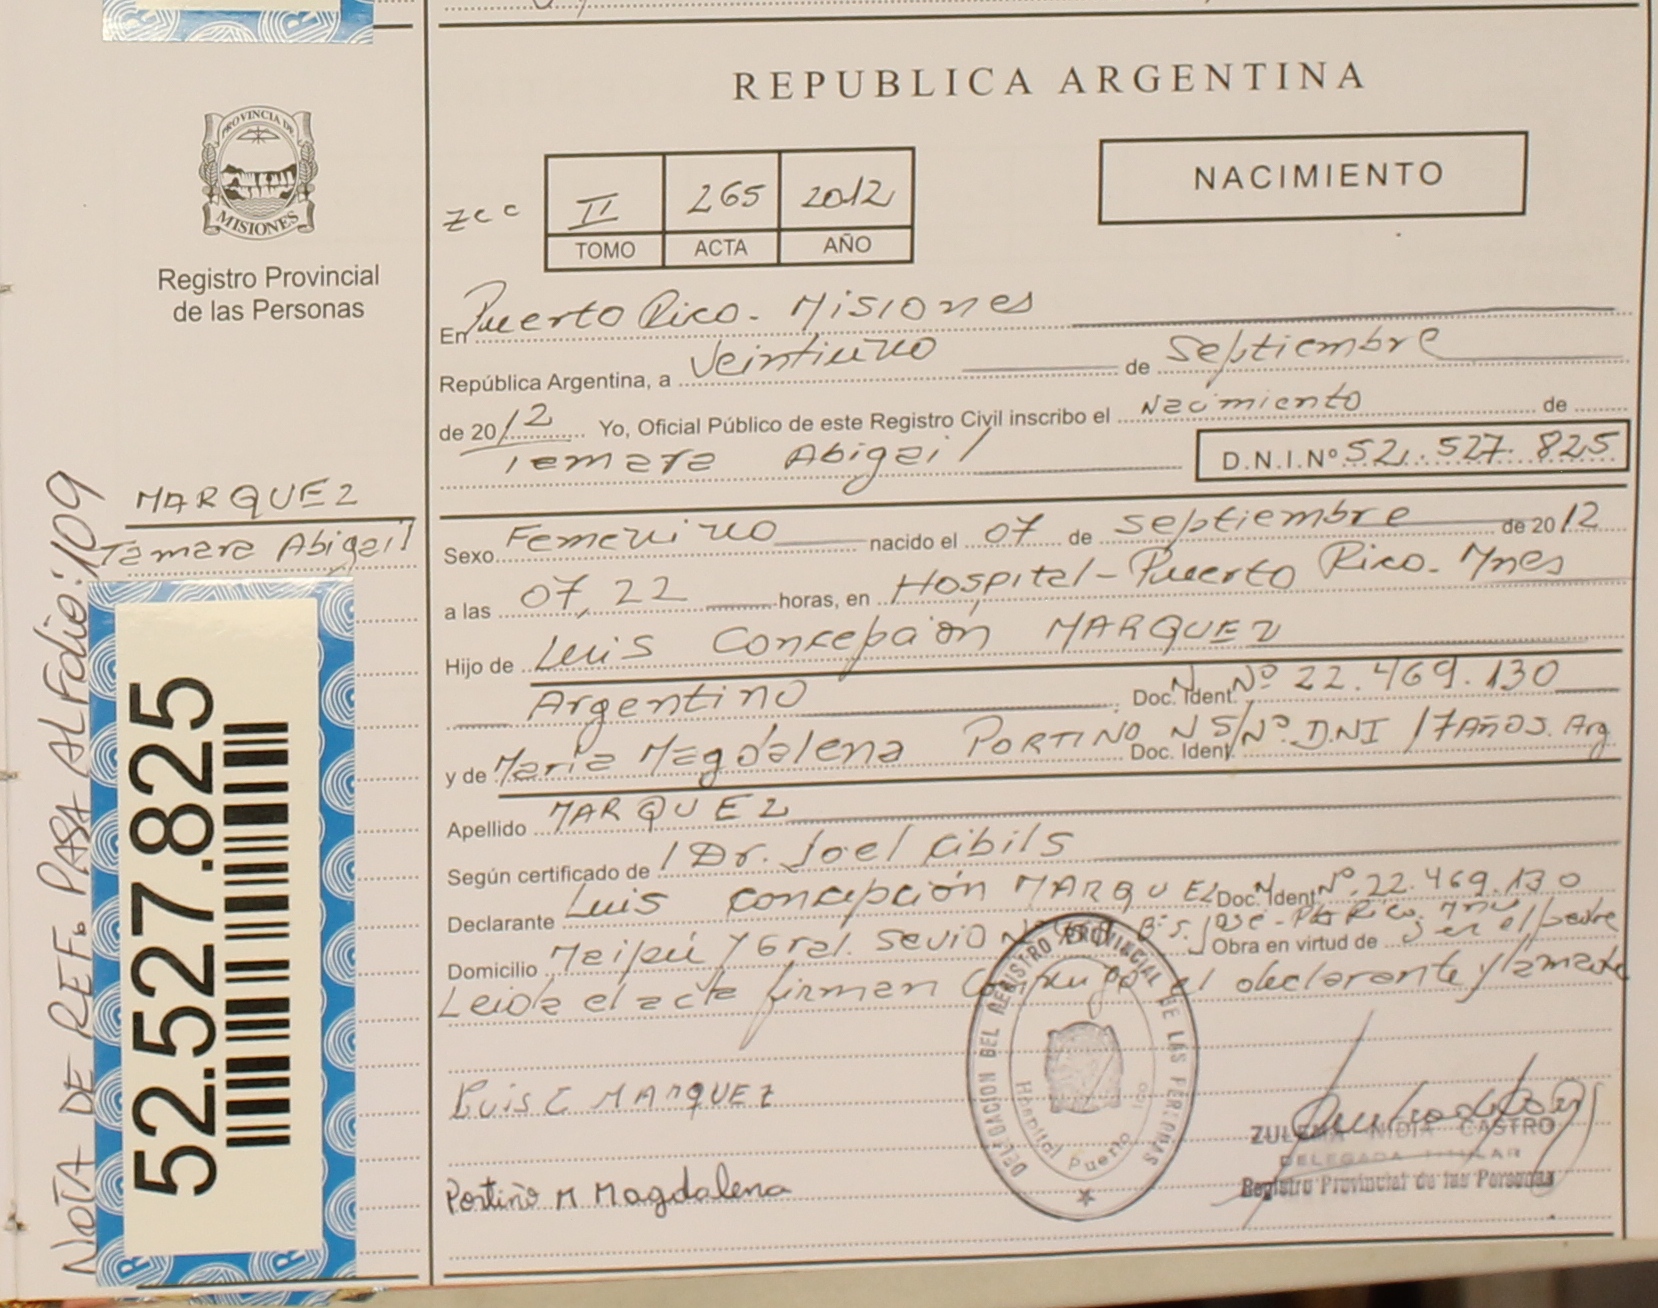 REPUBLICA ARGENTINA
PROVINCIA DE
MISIONES
Registro Provincial
de las Personas
zcc
II 265 2012
TOMO ACTA AÑO
NACIMIENTO
En Puerto Rico. Misiones
República Argentina, a Veintiuno de Septiembre
de 2012 Yo, Oficial Público de este Registro Civil inscribo el Nacimiento de
Temara Abigail D.N.I.Nº 52.527.825
MARQUEZ
Tamara Abigail
Sexo Femenino nacido el 07 de Septiembre de 2012
a las 07,22 horas, en Hospital-Puerto Rico. Mnes
Hijo de Luis Concepción MARQUEZ
Argentino Doc. Ident. Nº 22.469.130
y de Maria Magdalena PORTINO Doc. Ident. NS/Nº. D.NI 17 Años. Arg
Apellido MARQUEZ
Según certificado de Dr. Joel Cibils
Declarante Luis Concepción MARQUEZ Doc. Ident. Nº. 22.469.130
Domicilio Maipú y Gral. Bº S. José - Pto Rico. Obra en virtud de ser el padre
Leida el acta firman el declarante y la madre
Luis C MARQUEZ
Portiño M Magdalena
DELEGACION DEL REGISTRO PROVINCIAL DE LAS PERSONAS
Hospital Puerto
ZULEMA NIDIA CASTRO
DELEGADA TITULAR
Registro Provincial de las Personas
NOTA DE REF. PASA AL Folio: 109
52.527.825